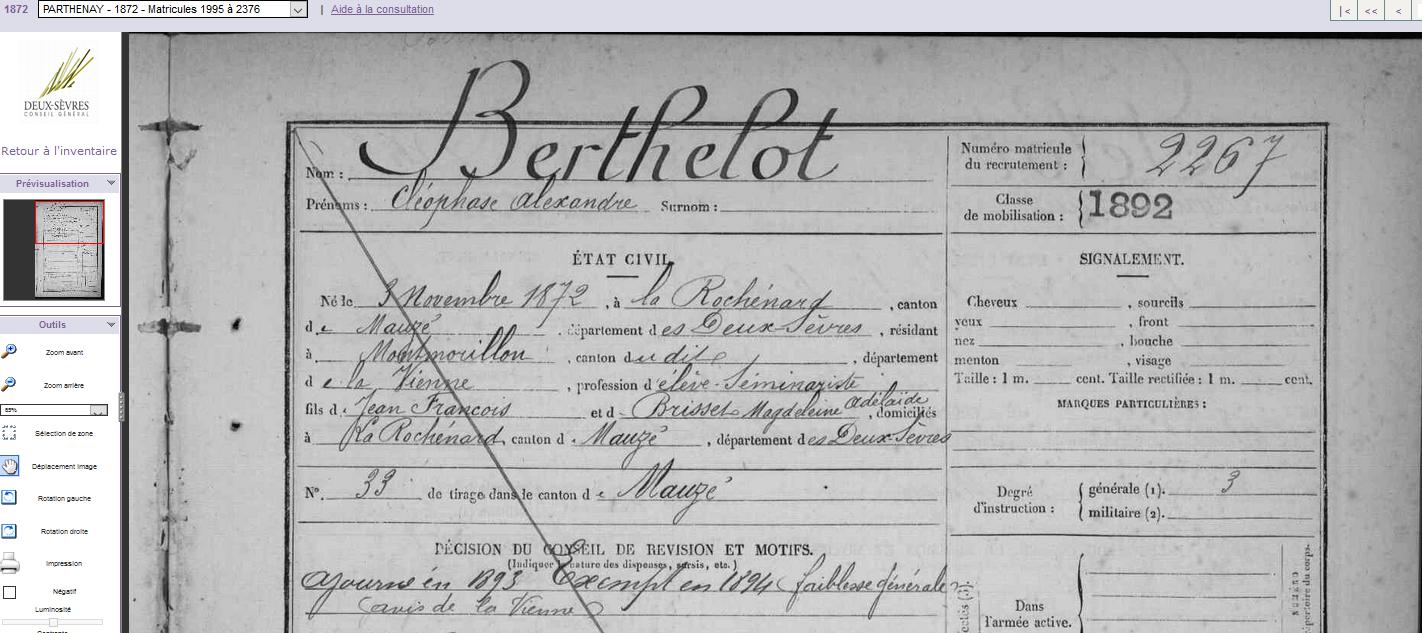 1872 PARTHENAY - 1872 - Matricules 1995 à 2376 | Aide à la consultation |< << <
DEUX-SÈVRES
CONSEIL GÉNÉRAL
Retour à l'inventaire
Prévisualisation
Outils
Zoom avant
Zoom arrière
85%
Sélection de zone
Déplacement image
Rotation gauche
Rotation droite
Impression
Négatif
Luminosité
Contraste
Nom : Berthelot
Prénoms : Cléophase Alexandre Surnom :
Numéro matricule
du recrutement : 2267
Classe
de mobilisation : 1892
ÉTAT CIVIL.
Né le 3 Novembre 1872, à la Rochénard, canton
de Mauzé, département des Deux-Sèvres, résidant
à Montmorillon, canton du dit, département
de la Vienne, profession d'élève-Séminariste
fils d. Jean François et d. Brisset Magdeleine Adélaïde, domiciliés
à La Rochénard, canton d. Mauzé, département des Deux-Sèvres
N°. 33 de tirage dans le canton de Mauzé
SIGNALEMENT.
Cheveux , sourcils
yeux , front
nez , bouche
menton , visage
Taille : 1 m. cent. Taille rectifiée : 1 m. cent.
MARQUES PARTICULIÈRES :
Degré
d'instruction :
générale (1). 3
militaire (2).
DÉCISION DU CONSEIL DE REVISION ET MOTIFS.
(Indiquer nature des dispenses, sursis, etc.)
ajourné en 1893 Exempt en 1894 faiblesse générale
(avis de la Vienne)
Dans
l'armée active.
NUMÉRO
répertoire du corps.